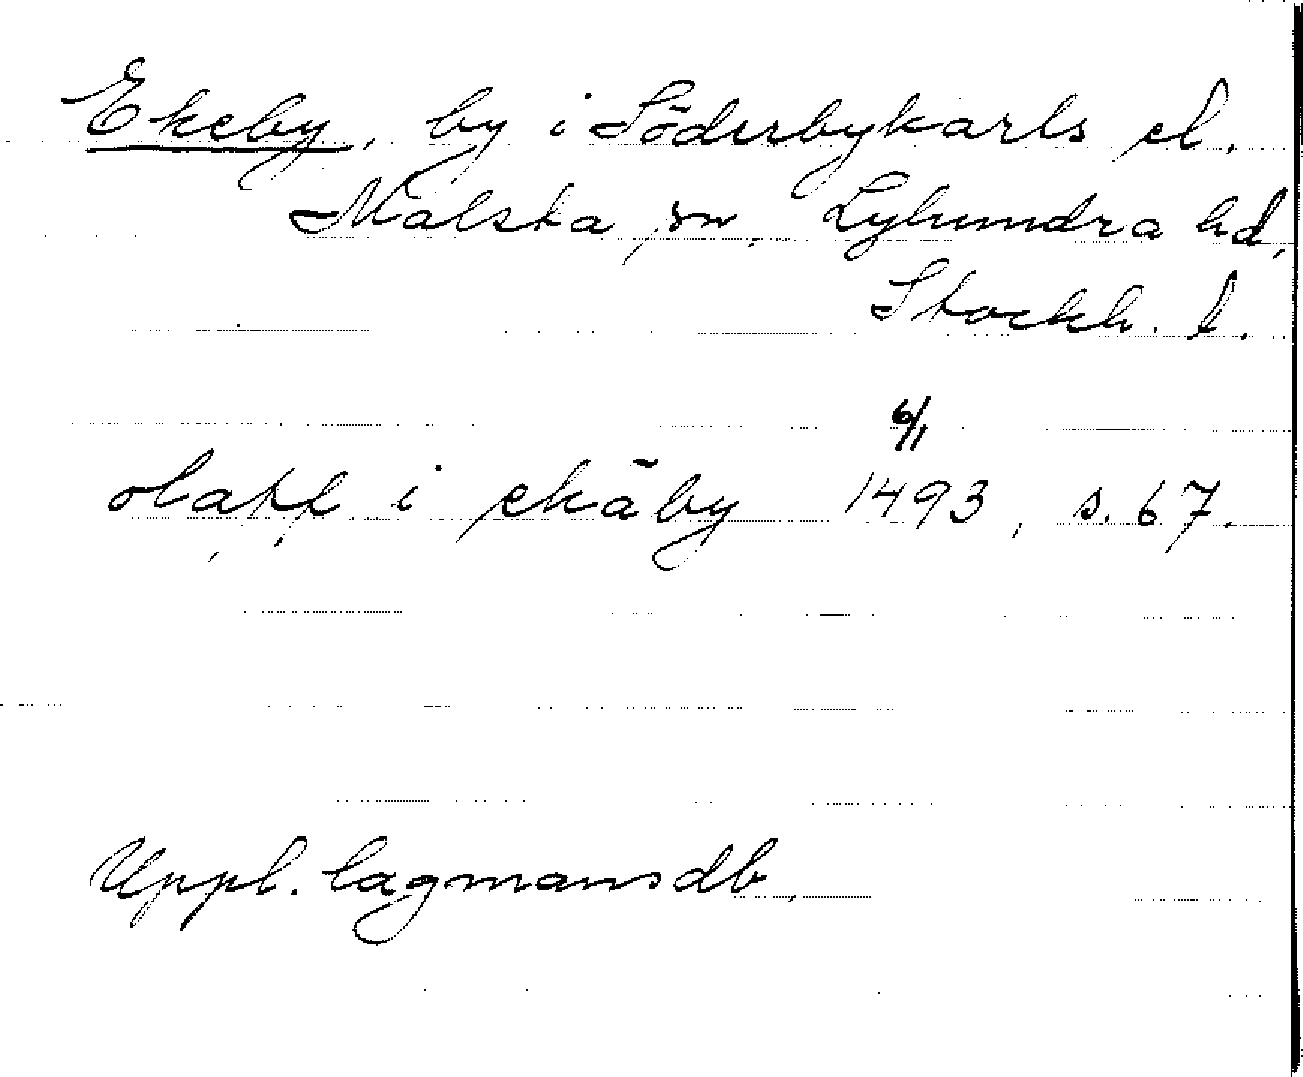 Ekeby, by i Söderbykarls el.
Malsta sn. Lyhundra hd,
Stockh. l.
6/1
olaff i ekäby 1493, s. 67.
Uppl. lagmansdb.